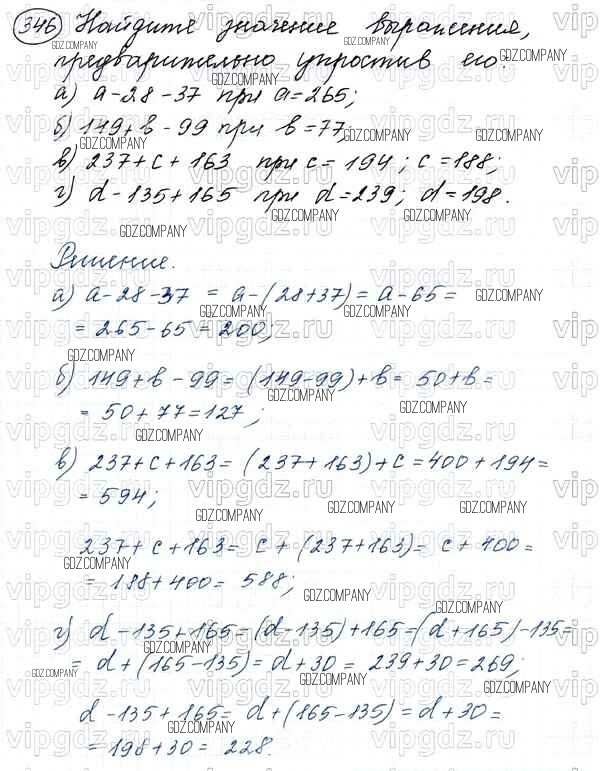 346 Найдите значение выражения,
предварительно упростив его:
а) a-28-37 при a=265;
б) 149+b-99 при b=77;
в) 237+c+163 при c=194; c=188;
г) d-135+165 при d=239; d=198.
Решение.
а) a-28-37 = a-(28+37) = a-65 =
= 265-65 = 200;
б) 149+b-99 = (149-99)+b = 50+b =
= 50+77=127;
в) 237+c+163 = (237+163)+c = 400+194 =
= 594;
237+c+163 = c+(237+163) = c+400 =
= 188+400 = 588;
г) d-135+165 = (d-135)+165 = (d+165)-135 =
= d+(165-135) = d+30 = 239+30 = 269;
d-135+165 = d+(165-135) = d+30 =
= 198+30 = 228.